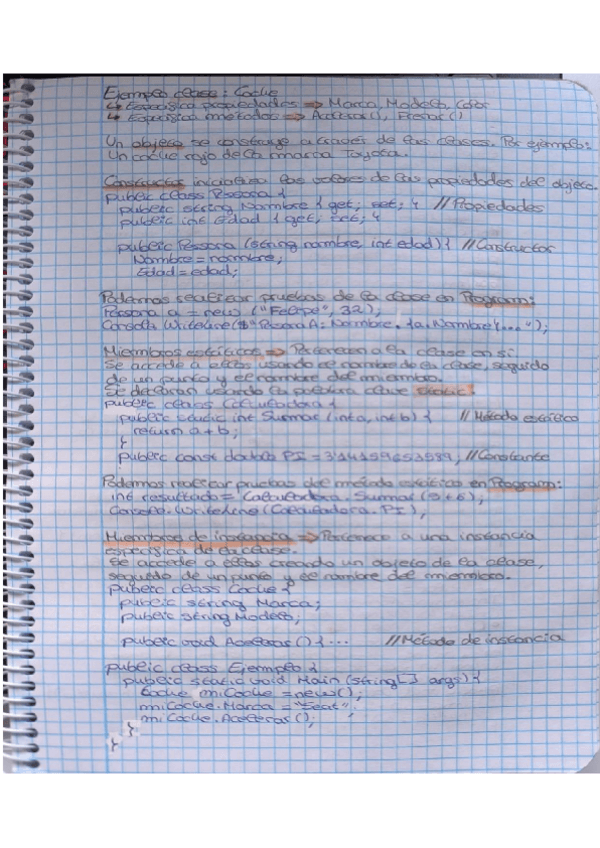 Ejemplo clase: Coche
↳ Especifica propiedades => Marca, Modelo, Color
↳ Especifica métodos => Acelerar(), Frenar()
Un objeto se construye a través de las clases. Por ejemplo:
Un coche rojo de la marca Toyota.
Constructor inicializa los valores de las propiedades del objeto.
public class Persona {
public string Nombre { get; set; } //Propiedades
public int Edad { get; set; }
public Persona (string nombre, int edad) { //Constructor
Nombre = nombre;
Edad = edad;
Podemos realizar pruebas de la clase en Program:
Persona a = new ("Felipe", 32);
Console.WriteLine($"Persona A: Nombre. {a.Nombre}...");
Miembros estáticos => Pertenecen a la clase en sí.
Se accede a ellos usando el nombre de la clase, seguido
de un punto y el nombre del miembro.
Se declaran usando la palabra clave static.
public class Calculadora {
public static int Sumar (int a, int b) { //Método estático
return a + b;
}
public const double PI = //Constante
Podemos realizar pruebas del método estático en Program:
int resultado = Calculadora.Sumar (5+6);
Console.WriteLine (Calculadora.PI);
Miembros de instancia => Pertenece a una instancia
específica de la clase.
Se accede a ellos creando un objeto de la clase,
seguido de un punto y el nombre del miembro.
public class Coche {
public string Marca;
public string Modelo;
public void Acelerar () { ... //Método de instancia
public class Ejemplo {
public static void Main (string[] args) {
Coche miCoche = new();
miCoche.Marca = "Seat";
miCoche.Acelerar ();
}
}